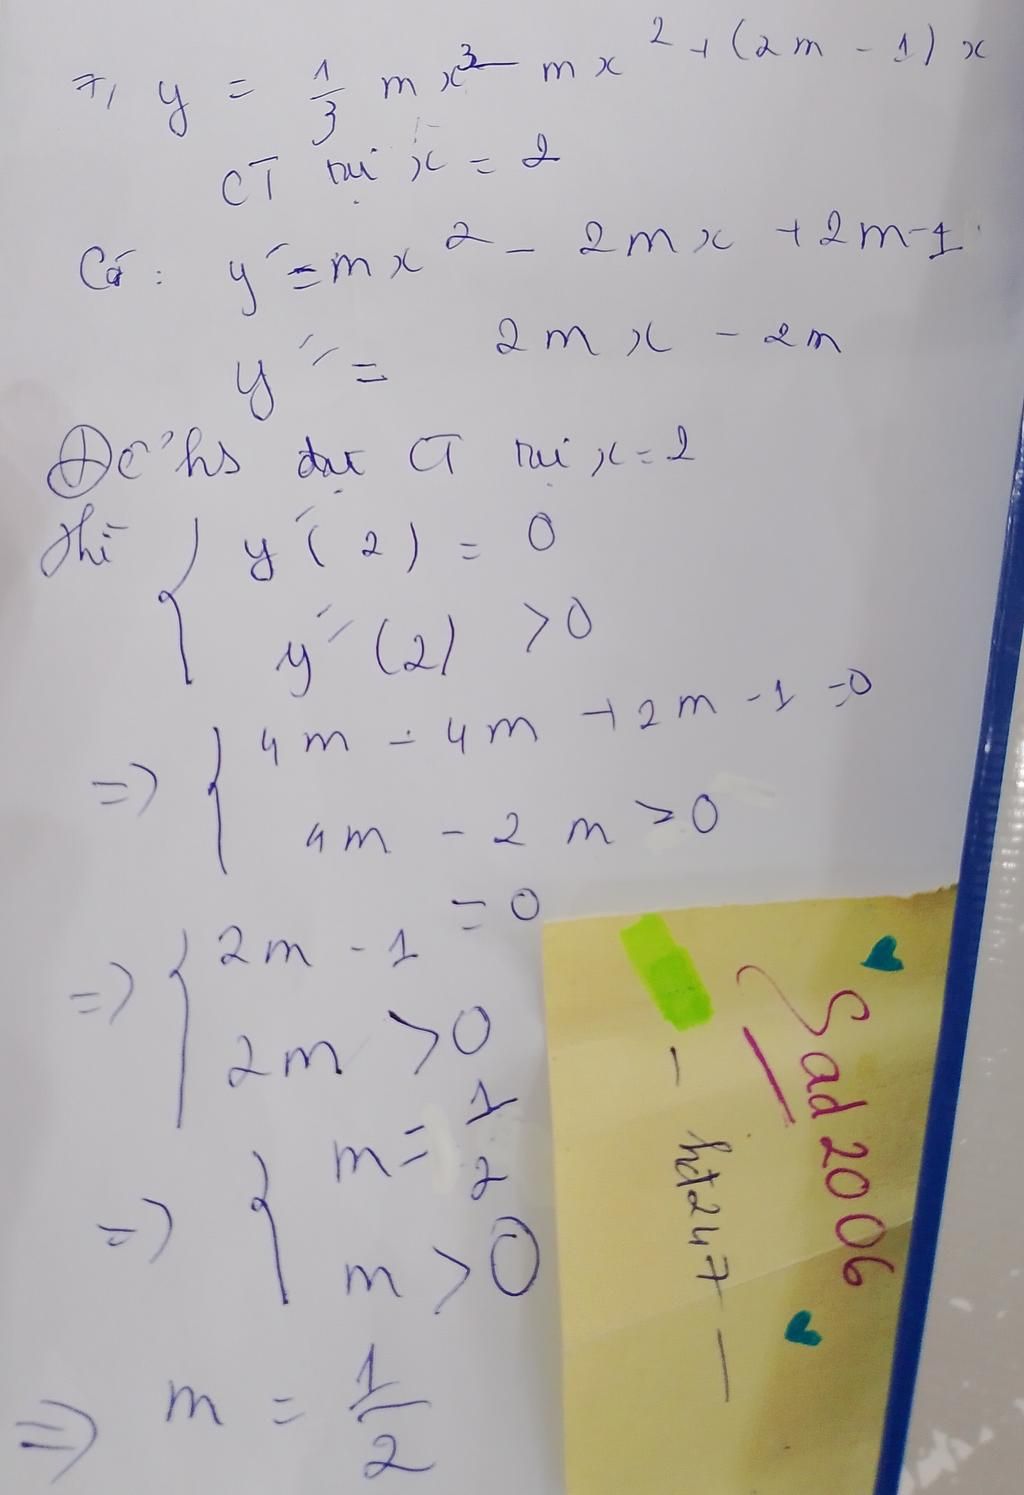 7, y = 1/3 mx³ - mx² + (2m - 1)x
CT tại x = 2
Có: y' = mx² - 2mx + 2m-1
y'' = 2mx - 2m
Để hs đạt CT tại x=2
thì { y'(2) = 0
y''(2) > 0
=> { 4m - 4m + 2m - 1 = 0
4m - 2m > 0
=> { 2m - 1 = 0
2m > 0
=> { m = 1/2
m > 0
=> m = 1/2
Sad 2006
- hd247 -